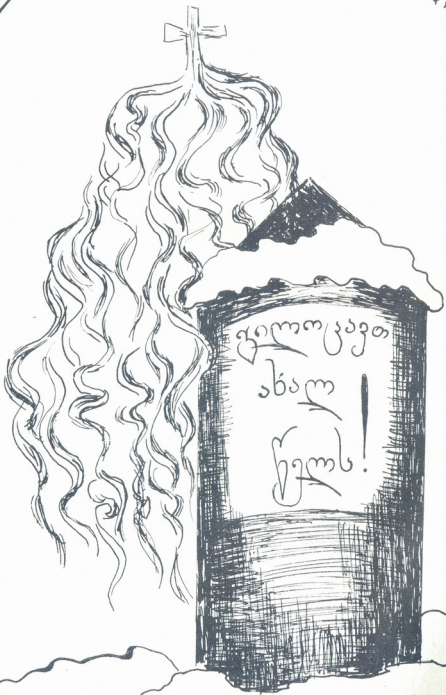 გილოცავთ
ახალ
წელს!